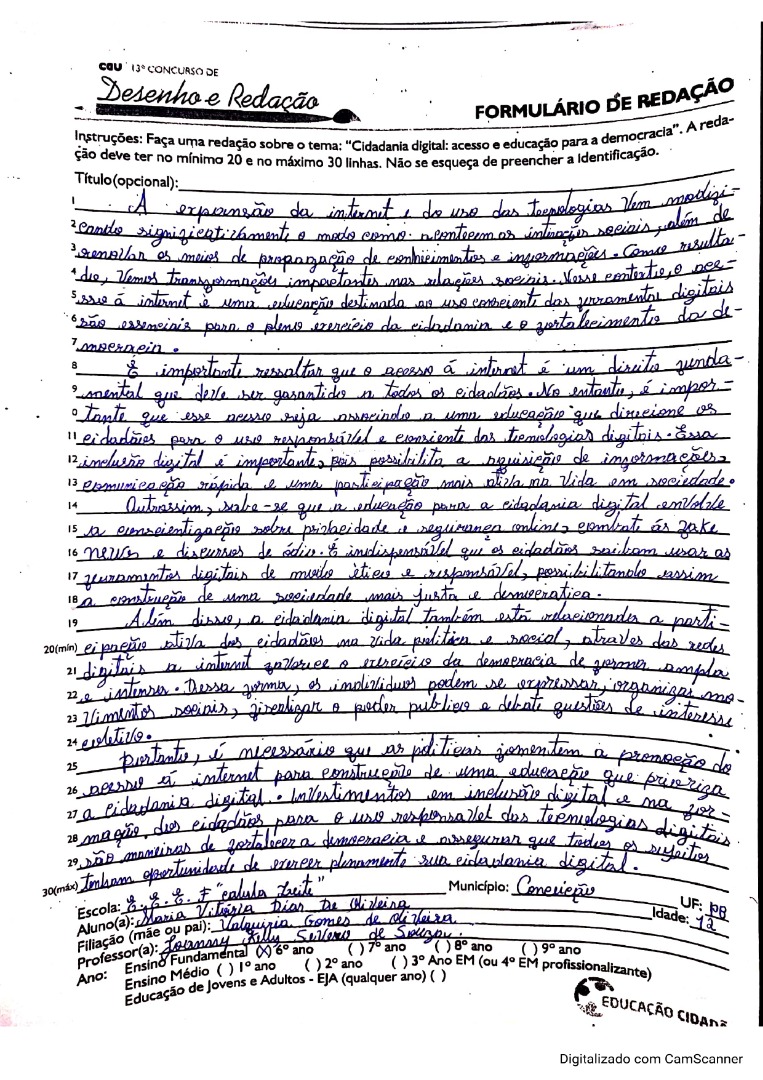 CGU 13º CONCURSO DE
Desenho e Redação
FORMULÁRIO DE REDAÇÃO
Instruções: Faça uma redação sobre o tema: "Cidadania digital: acesso e educação para a democracia". A reda-
ção deve ter no mínimo 20 e no máximo 30 linhas. Não se esqueça de preencher a Identificação.
Título(opcional):
1 A expansão da internet e do uso das tecnologias vem modifi-
2 cando significativamente o modo como acontecem as interações sociais, além de
3 renovar os meios de propagação de conhecimentos e informações. Como resulta-
4 do, vemos transformações impactantes nas relações sociais. Nesse contexto, o ace-
5 sso á internet é uma educação destinada ao uso consciente das ferramentas digitais
6 são essenciais para o pleno exercício da cidadania e o fortalecimento da de-
7 mocracia.
8 É importante ressaltar que o acesso á internet é um direito funda-
9 mental que deve ser garantido a todos os cidadãos. No entanto, é impor-
0 tante que esse acesso seja associado a uma educação que direcione os
11 cidadãos para o uso responsável e consiente das tecnologias digitais. Essa
12 inclusão digital é importante, pois possibilita a aquisição de informações,
13 comunicação rápida e uma participação mais ativa na vida em sociedade.
14 Outrossim, sabe-se que a educação para a cidadania digital envolve
15 a conscientização sobre privacidade e segurança online, combate ás fake
16 news e discursos de ódio. É indispensável que os cidadãos saibam usar as
17 ferramentas digitais de modo ético e responsável, possibilitando assim
18 a construção de uma sociedade mais justa e democratica.
19 Além disso, a cidadania digital também está relacionadas a parti-
20(min) cipação ativa dos cidadãos na vida política e social, atraves das redes
21 digitais a internet favorece o exercício da democracia de forma ampla
22 e intensa. Dessa forma, os indivíduos podem se expressar, organizar mo-
23 vimentos sociais, fiscalizar o poder publico e debate questões de interesse
24 coletivo.
25 Portanto, é necessário que as políticas fomentem a promoção do
26 acesso á internet para construção de uma educação que prioriza
27 a cidadania digital. Investimentos em inclusão digital e na for-
28 mação dos cidadãos para o uso responsavel das tecnologias digitais
29 são maneiras de fortalecer a democracia e assegurar que todos os sujeitos
30(máx) tenham oportunidade de exercer plenamente sua cidadania digital.
Escola: E. E. E. F "calula Leite" Município: Conceição UF: PB
Aluno(a): Maria Vitória Dias De Oliveira Idade: 12
Filiação (mãe ou pai): Valquiria Gomes de Oliveira
Professor(a): Kelly Severo de Souza
Ano: Ensino Fundamental (X) 6º ano ( ) 7º ano ( ) 8º ano ( ) 9º ano
Ensino Médio ( ) 1º ano ( ) 2º ano ( ) 3º Ano EM (ou 4º EM profissionalizante)
Educação de Jovens e Adultos - EJA (qualquer ano) ( )
EDUCAÇÃO CIDADÃ
Digitalizado com CamScanner